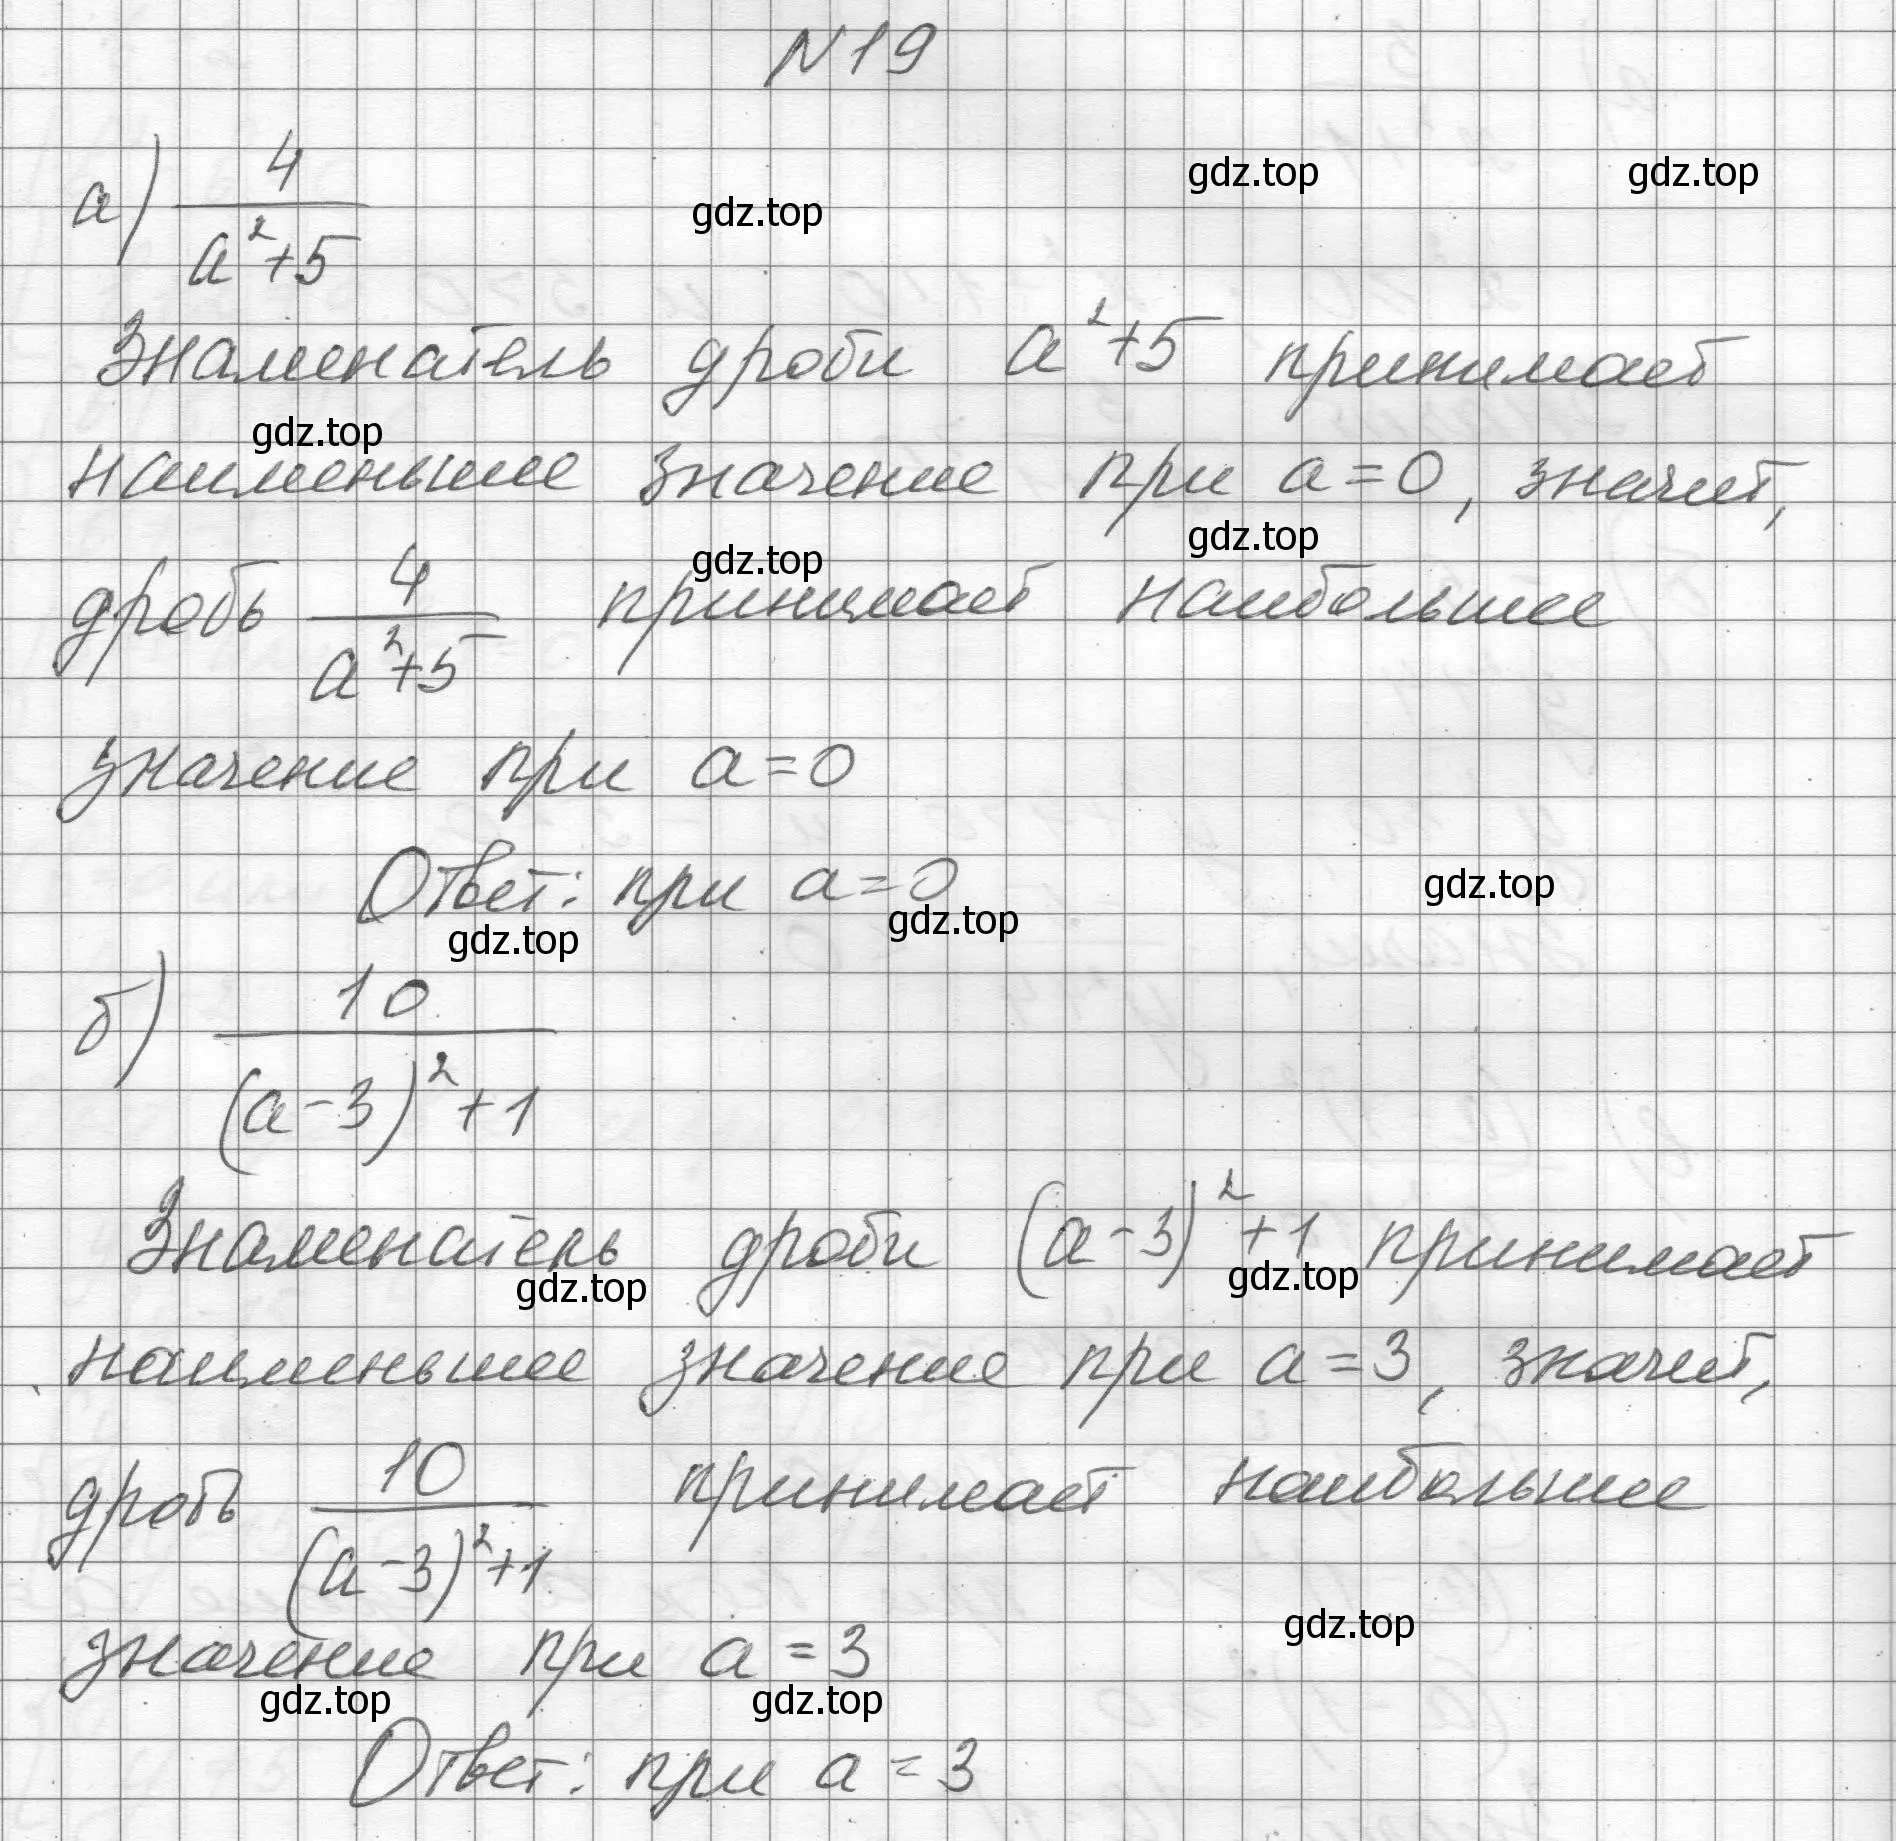 N19
gdz.top gdz.top gdz.top
а) 4/(a²+5)
Знаменатель дроби a²+5 принимает
gdz.top
наименьшее значение при a=0, значит,
gdz.top gdz.top
дробь 4/(a²+5) принимает наибольшее
значение при a=0
Ответ: при a=0
gdz.top gdz.top gdz.top
б) 10/((a-3)²+1)
Знаменатель дроби (a-3)²+1 принимает
gdz.top gdz.top
наименьшее значение при a=3, значит,
дробь 10/((a-3)²+1) принимает наибольшее
gdz.top
значение при a=3
gdz.top gdz.top
Ответ: при a=3